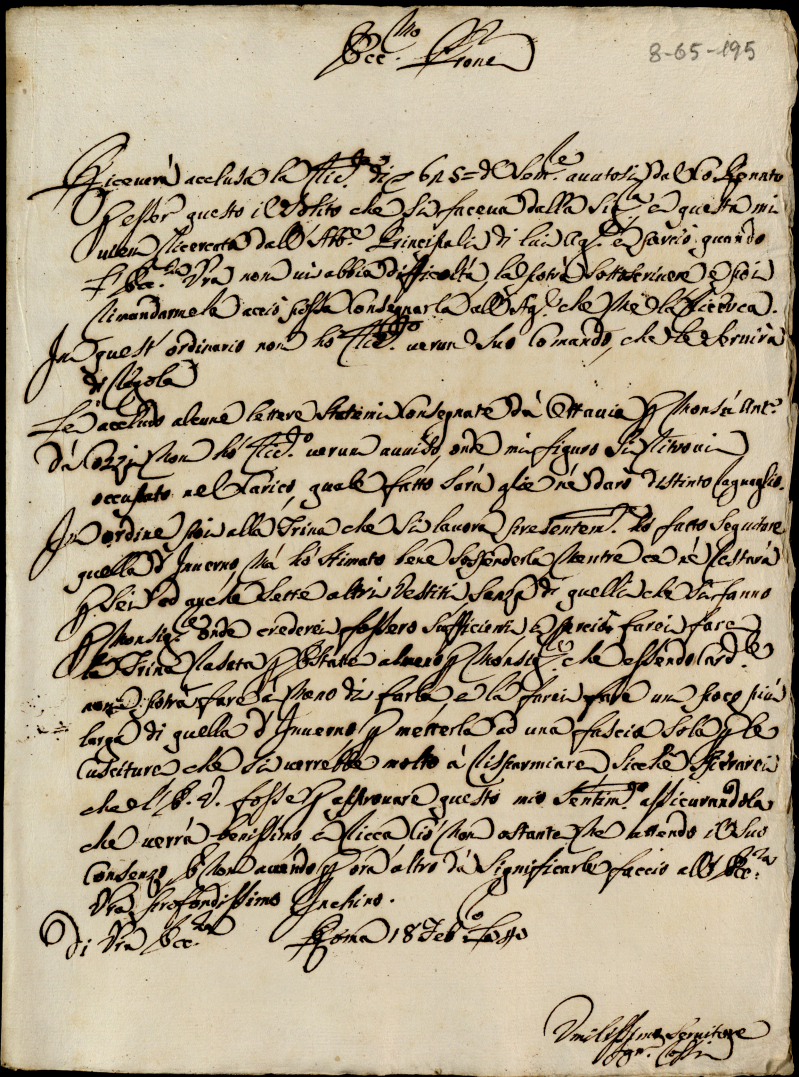 Ecc.mo Prone
8-65-195
Riceverà acclusa la Ric.ta di 6 dal
P esser questo il solito che si faceva dalla e questa mi
vien ricercata dall' Principali di e perciò quando
l' Ecc.za Vra non vi abbia difficoltà, la potrà sottoscrivere e poi
rimandarmela acciò possa consegnarla all' che me la ricerca.
In quest' ordinario non hò Ric.to verun suo Comando, che le servirà
di regola
Le accludo alcune lettere statemi consegnate dà Ottavio P Monsù Ant.o
dà non hò Ric.to verun avviso, onde mi figuro si ritrovi
occupato nel Carico, quale fatto sarà gliene darò distinto raguaglio.
In ordine poi alla Trina che si lavora presentem.te hò fatto seguitare
quella d' Inverno, mà hò stimato bene sospenderla mentre ce ne restarà
P sei ed anche sette altri vestiti senza di quelli che si fanno
P Monsig.re onde crederei fossero sufficienti e perciò farei fare
la Trina rasata P Estate almeno P Monsig.re che essendo
non potrà fare à meno di farla e la farei fare un poco più
larga di quella d' Inverno P metterla ad una fascia sola P le
cusciture che si verrebbe molto à risparmiare, sicche sperarei
che l' E. V. fosse P approvare questo mio sentim.to assicurandola
che verrà benissimo e ricca ciò non ostante ne attendo il suo
consenzo, e non avendo P ora altro dà significarle faccio all' Ecc.za
Vra profondissimo Inchino.
Di Vra Ecc.za Roma 18 Feb.o
Umilissimo Servitore